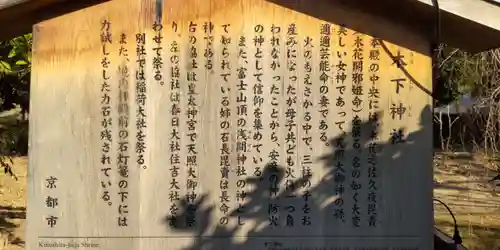 木下神社
本殿の中央には
木花開邪姫命
を祭る。名の如く大変
美しい女神であって、天照大御神の孫、
邇邇芸能命の妻である。
火のもえさかる中で、三柱の子をお
産みになったが母子共ども火傷一つ負
われなかったことから、安産の神、防火
の神として信仰を集めている。
また、富士山頂の浅間神社の神とし
て知られている姉の石長毘賣は長命の
神である。
右の脇社は皇太神宮で天照大御神を祭
り、左の脇社は春日大社住吉大社を
合わせて祭る。
別社では稲荷大社を祭る。
また、境内拝殿前の石灯篭の下には
力試しをした力石が残されている。
京都市
Kinoshita-jinja Shrine